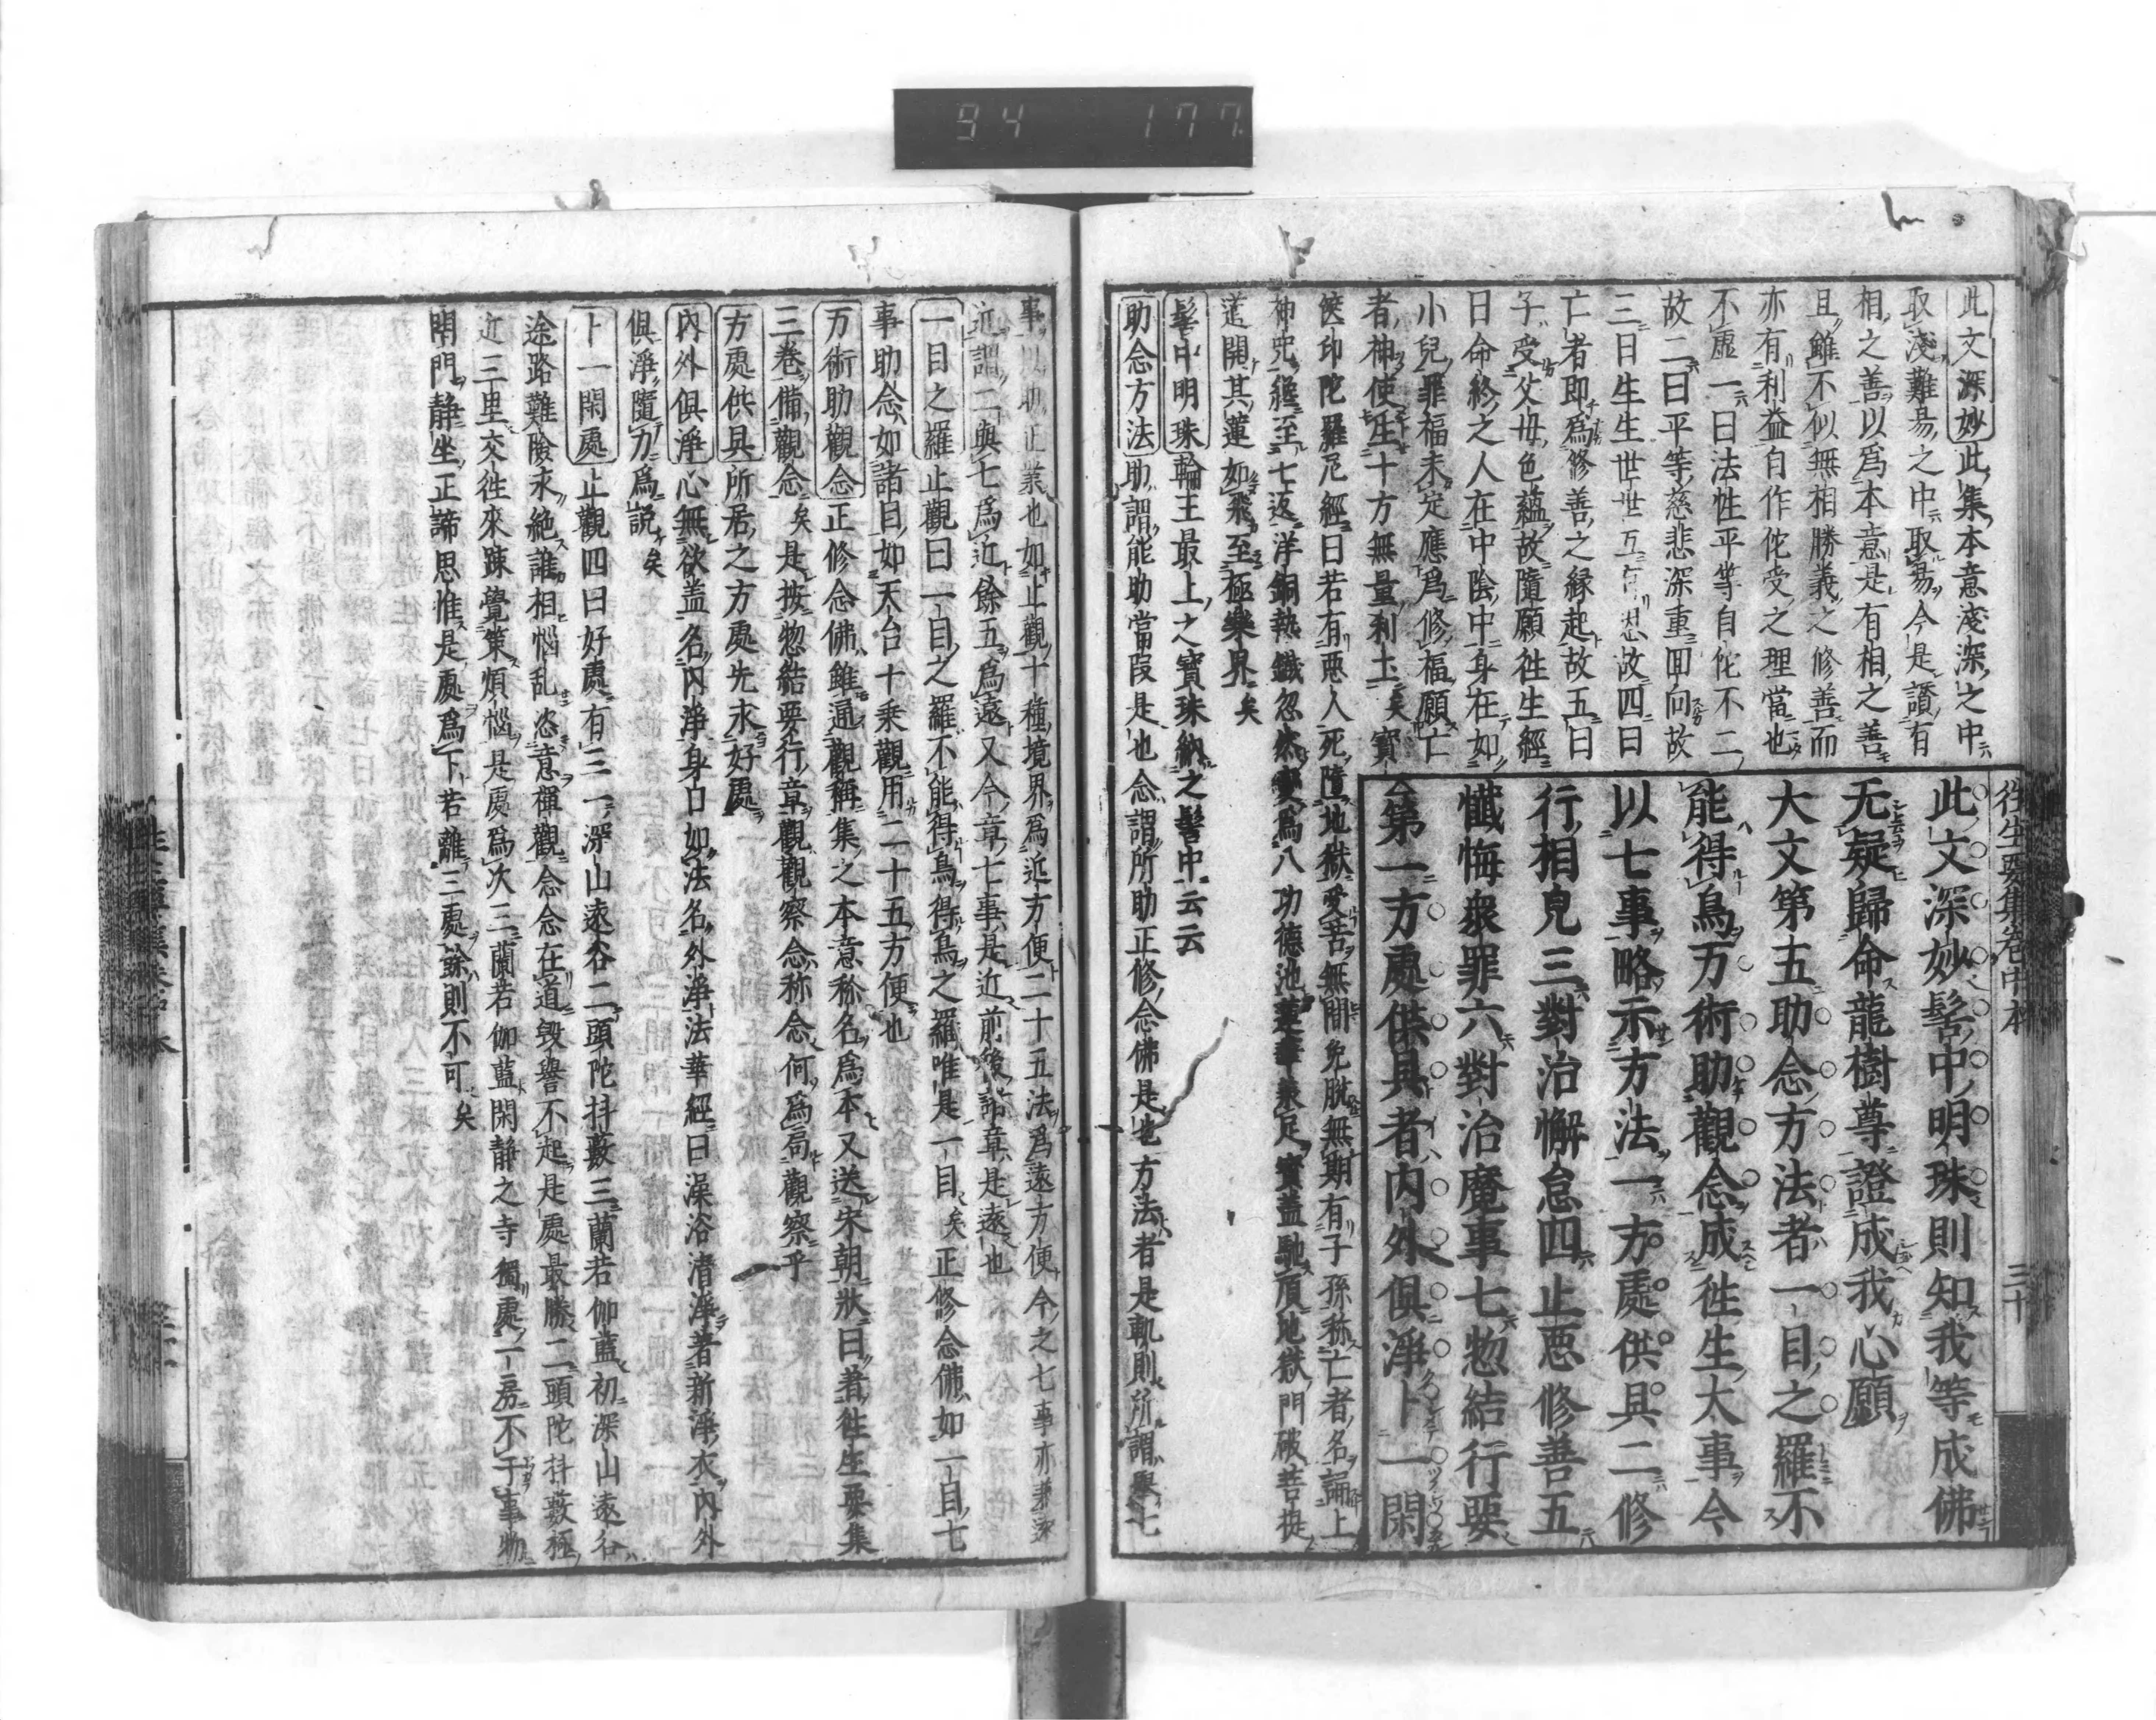 94 177
往生要集卷中本
三十
此文深妙髻中明珠則知我等成佛
无疑歸命龍樹尊證成我心願
大文第五助念方法者一目之羅不
能得鳥万術助觀念成徃生大事今
以七事略示方法一方處供具二修
行相皃三對治懈怠四止惡修善五
懺悔衆罪六對治魔事七惣結行要
第一方處供具者内外俱淨卜一閑
此文深妙此集本意淺深之中
取淺難易之中取易今是讚有
相之善以爲本意是有相之善
且雖不似無相勝義之修善而
亦有利益自作佗受之理當也
不虛一曰法性平等自佗不二
故二曰平等慈悲深重回向故
三曰生生世世互有恩故四曰
亡者即爲修善之縁起故五曰
子受父母色蘊故隨願徃生經
曰命終之人在中陰中身在如
小兒罪福未定應爲修福願亡
者神使生十方無量刹土矣寳
篋印陀羅尼經曰若有惡人死墮地獄受苦無間免脱無期有子孫称亡者名誦上
神咒纔至七返洋銅熱鐵忽然變爲八功德池蓮華承足寳蓋馳頂地獄門破菩提
道開其蓮如飛至極樂界矣
髻中明珠輪王最上之寳珠納之髻中云云
助念方法助謂能助當段是也念謂所助正修念佛是也方法者是軌則所謂擧七
事以助正業也如止觀十種境界爲近方便二十五法爲遠方便今之七事亦兼深
近謂二與七爲近餘五爲遠又今章七事是近前後諸章是遠也
一目之羅止觀曰一目之羅不能得鳥得鳥之羅唯是一目矣正修念佛如一目七
事助念如諸目如天台十乘觀用二十五方便也
万術助觀念正修念佛雖通觀稱集之本意称名爲本又送宋朝狀曰者徃生要集
三卷備觀念矣是按惣結要行章觀觀察念称念何爲局觀察乎
方處供具所居之方處先求好處
内外俱淨心無欲盖名内淨身口如法名外淨法華經曰澡浴清淨著新淨衣内外
俱淨隨力爲説矣
卜一閑處止觀四曰好處有三一深山遠谷二頭陀抖藪三蘭若伽藍初深山遠谷
途路難險永絶誰相惱乱恣意禪觀念念在道毀譽不起是處最勝二頭陀抖藪極
近三里交徃來踈覺策煩惱是處爲次三蘭若伽藍閑静之寺獨處一房不干事物
閉門静坐正諦思惟是處爲下若離三處餘則不可矣